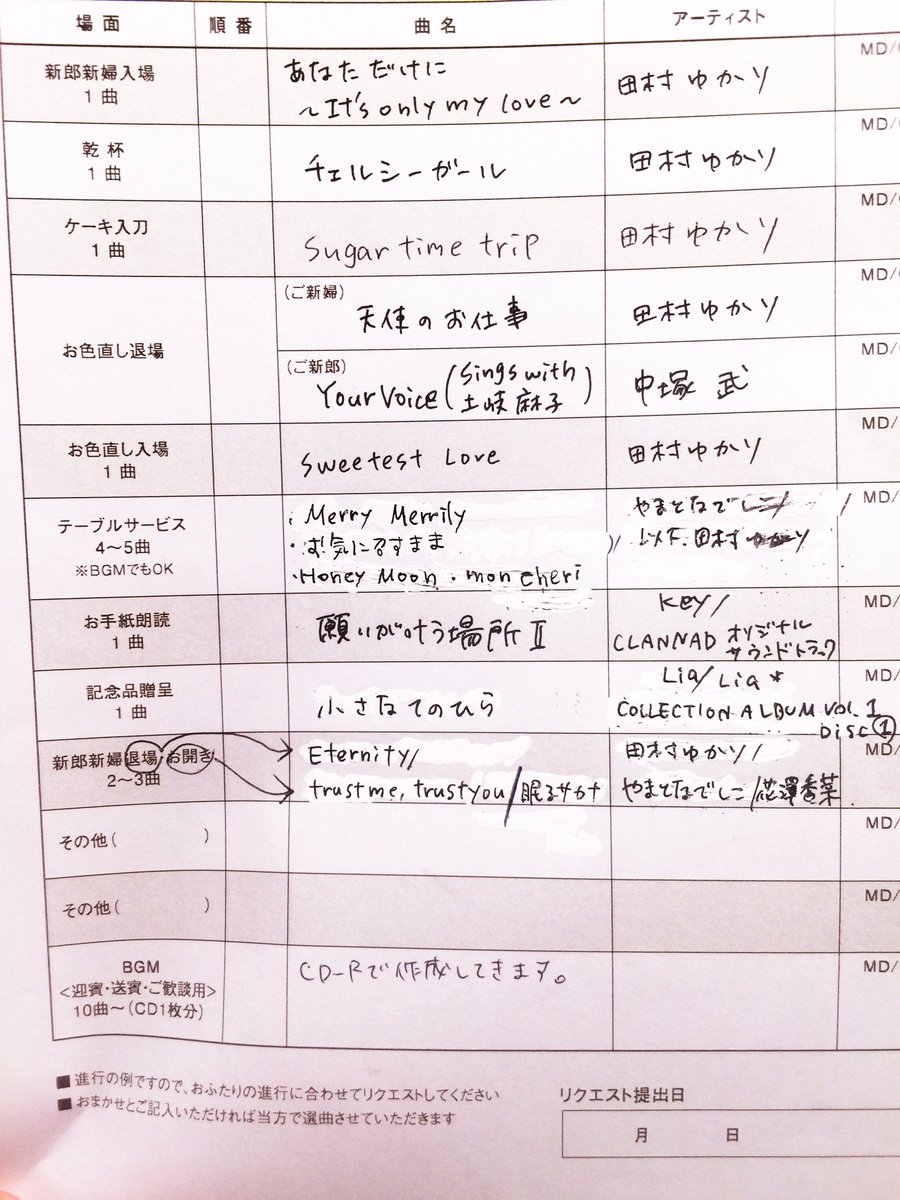 場面 順番 曲名 アーティスト
MD/
新郎新婦入場
1曲
あなただけに
～It's only my love～
田村ゆかり
MD/
乾杯
1曲
チェルシーガール
田村ゆかり
MD/
ケーキ入刀
1曲
Sugar time trip
田村ゆかり
MD/
お色直し退場
(ご新婦)
天使のお仕事
田村ゆかり
MD/
(ご新郎)
Your Voice (Sings with
土岐麻子)
中塚 武
MD/
お色直し入場
1曲
Sweetest Love
田村ゆかり
MD/
テーブルサービス
4～5曲
※BGMでもOK
・Merry Merrily
・お気に召すまま
・Honey Moon ・mon cheri
やまとなでしこ/
以下、田村ゆかり
MD/
お手紙朗読
1曲
願いが叶う場所Ⅱ
key/
CLANNAD オリジナル
サウンドトラック
MD/
記念品贈呈
1曲
小さなてのひら
Lia/Lia*
COLLECTION ALBUM Vol.1
DISC①
MD/
新郎新婦退場・お開き
2～3曲
Eternity/
trust me, trust you/眠るサカナ
田村ゆかり/
やまとなでしこ/花澤香菜
MD/
その他( )
MD/
その他( )
MD/
BGM
<迎賓・送賓・ご歓談用>
10曲～(CD1枚分)
CD-Rで作成してきます。
MD/
■進行の例ですので、おふたりの進行に合わせてリクエストしてください
■おまかせとご記入いただければ当方で選曲させていただきます
リクエスト提出日
月 日